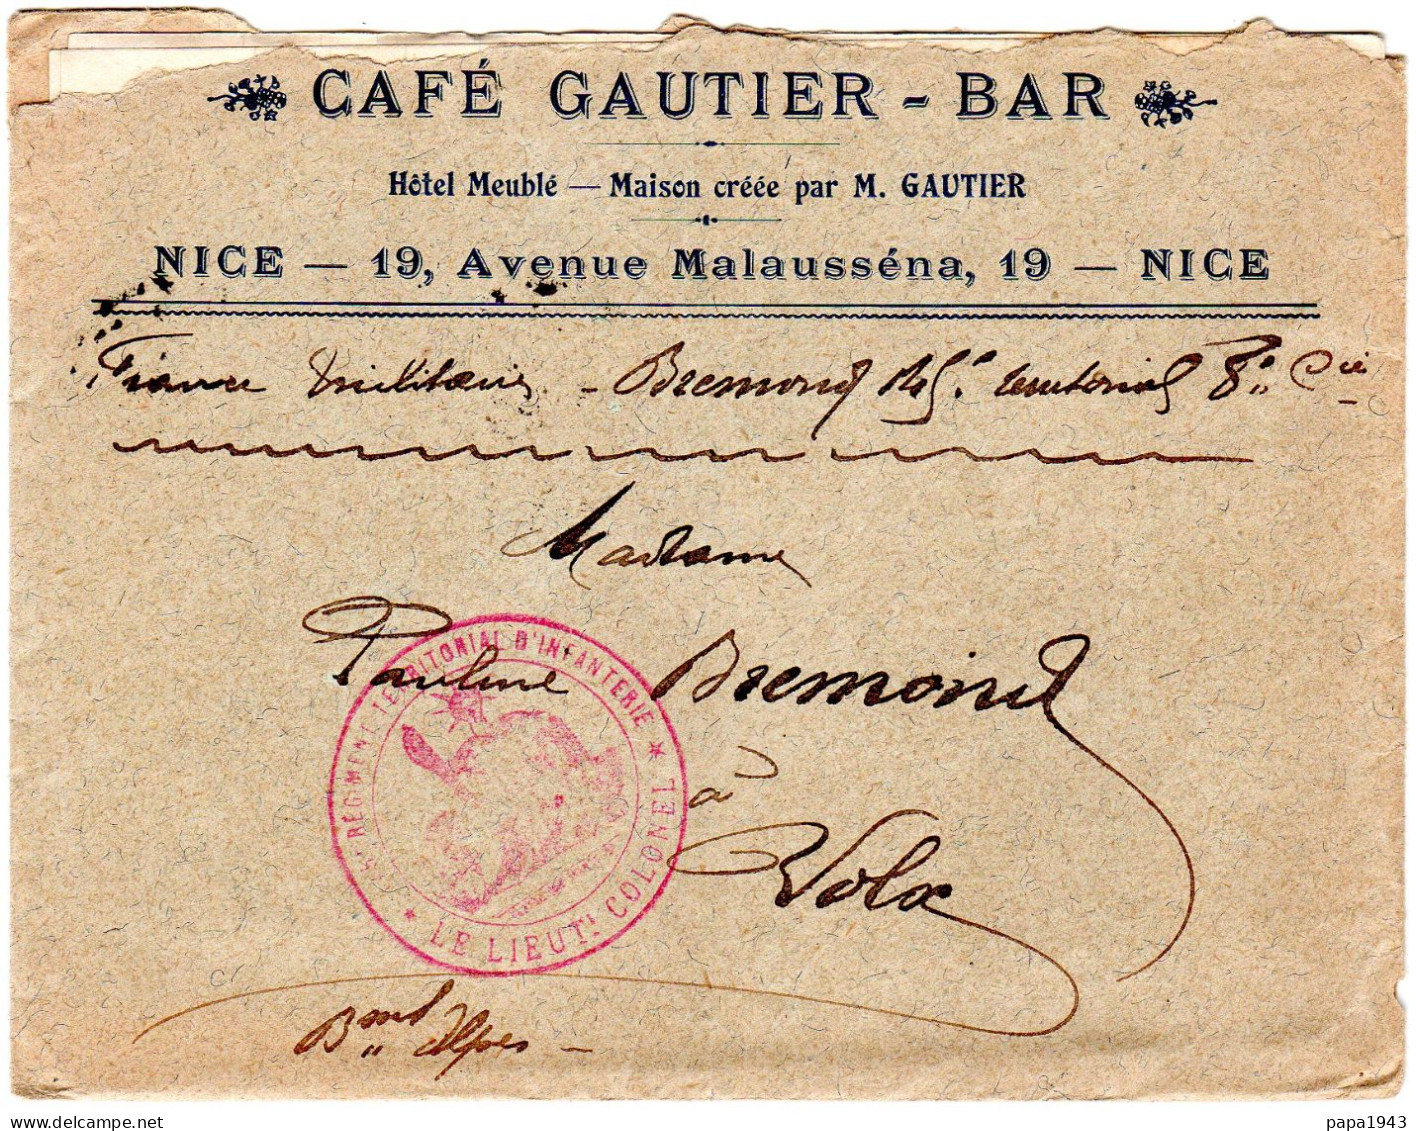 CAFÉ GAUTIER - BAR
Hôtel Meublé — Maison créée par M. GAUTIER
NICE — 19, Avenue Malausséna, 19 — NICE
France militaire - Bremond 145e territorial 8" Cie
Madame
Pauline Bremond
à
Volx
Bses alpes -
RÉGIMENT TERRITORIAL D'INFANTERIE
* LE LIEUTt COLONEL *
www.delcampe.net
papa1943